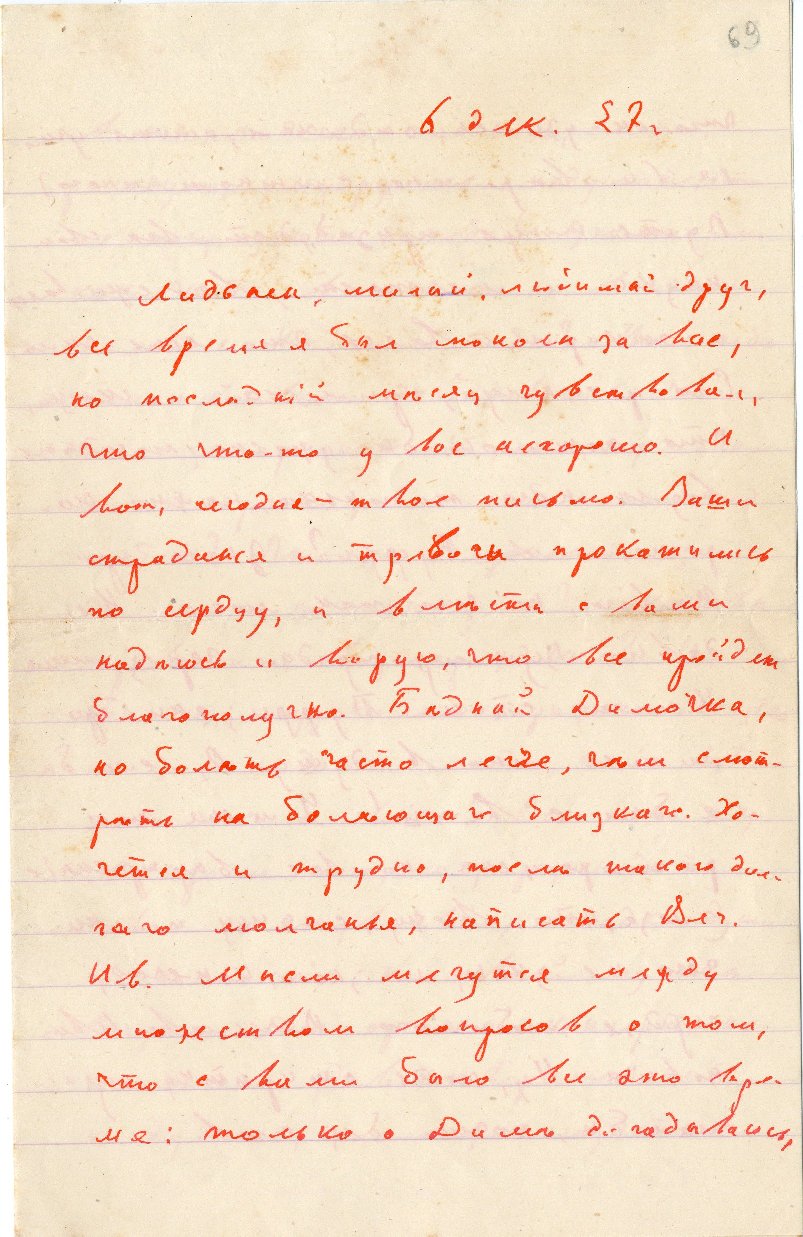 69
6 дек. 27 г
милый, любимый друг,
все время я был покоен за вас,
но последний мѣсяц чувствовал,
что что-то у вас нехорошо. И
вот, сегодня – твое письмо. Ваши
страданья и тревоги прокатились
по сердцу, и вмѣсте с вами
надѣюсь и верую, что все пройдет
благополучно. Бѣдный Димочка,
но болѣть часто легче, чѣм смот-
рѣть на болѣющих близких. Хо-
чется и трудно, послѣ такого дол-
гаго молчанья, написать Вяч.
Ив. Мысли мечутся между
множеством вопросов о том,
что с вами было все это вре-
мя: только о Димѣ догадываюсь,